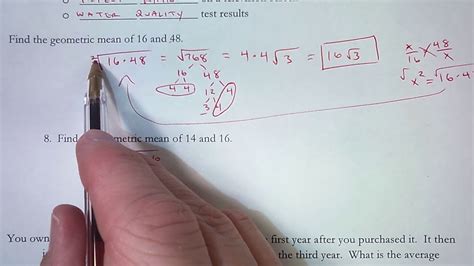 o WATER QUALITY test results
Find the geometric mean of 16 and 48.
√16·48 = √768 = 4·4√3 = 16√3
x/16 48/x
16 48
4 4 12 4
3 4
√x² = √16·4
8. Find metric mean of 14 and 16.
You own first year after you purchased it. It then
the third year. What is the average